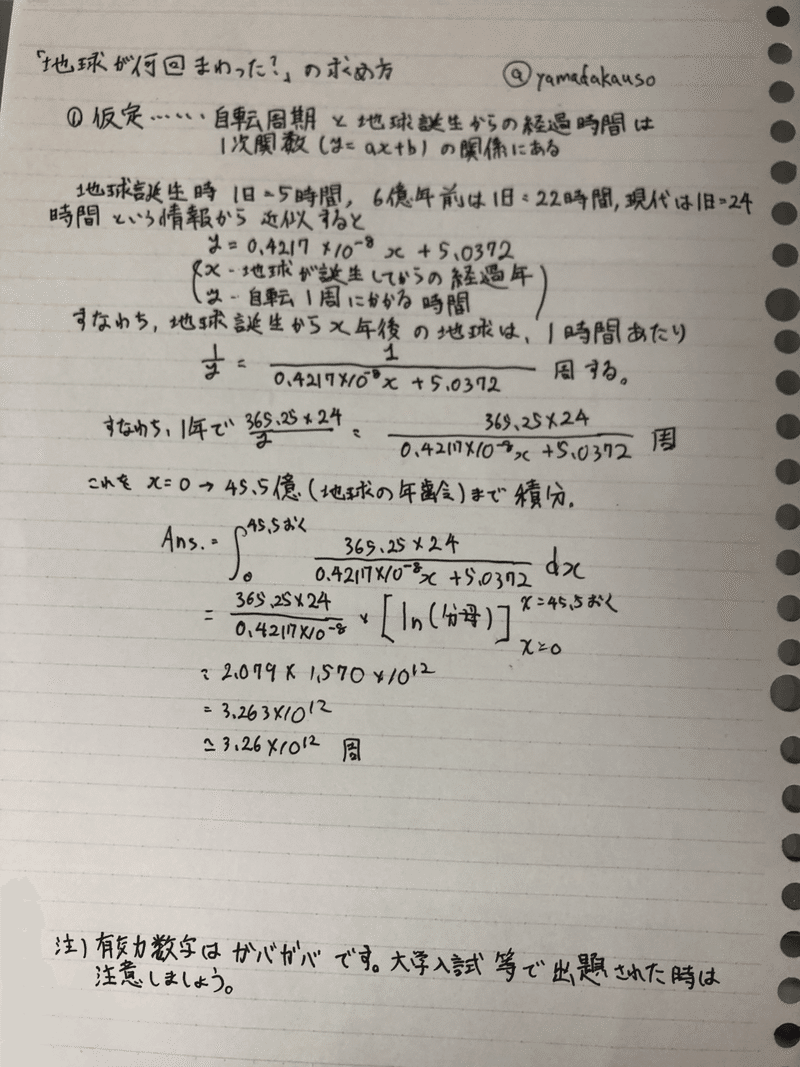 「地球が何回まわった?」の求め方 @yamadakauso
① 仮定……自転周期と地球誕生からの経過時間は
1次関数(y=ax+b)の関係にある
地球誕生時 1日=5時間, 6億年前は1日=22時間, 現代は1日=24
時間という情報から近似すると
y = 0.4217×10⁻⁸x + 5.0372
(x - 地球が誕生してからの経過年
y - 自転1周にかかる時間)
すなわち, 地球誕生からx年後の地球は、1時間あたり
1/y = 1/(0.4217×10⁻⁸x + 5.0372) 周する。
すなわち, 1年で (365.25×24)/y = (365.25×24)/(0.4217×10⁻⁸x + 5.0372) 周
これを x=0 → 45.5億(地球の年齢)まで積分.
Ans. = ∫₀^45.5おく (365.25×24)/(0.4217×10⁻⁸x + 5.0372) dx
= (365.25×24)/(0.4217×10⁻⁸) × [ln(分母)] x=45.5おく x=0
= 2.079 × 1.570 × 10¹²
= 3.263×10¹²
≃ 3.26×10¹² 周
注) 有効数字はガバガバです。大学入試等で出題された時は
注意しましょう。